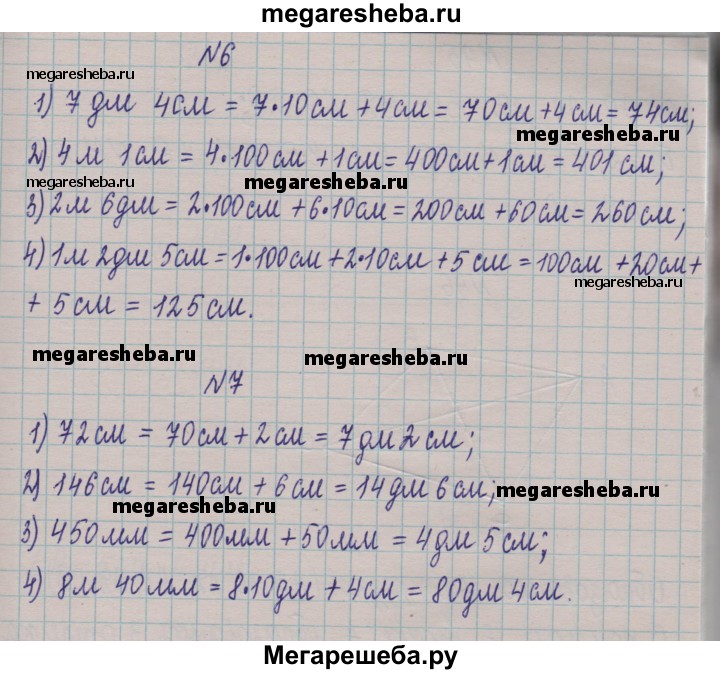 megaresheba.ru
N6
megaresheba.ru
1) 7 дм 4см = 7•10см + 4см = 70см + 4см = 74см;
megaresheba.ru
2) 4м 1см = 4•100см + 1см = 400см + 1см = 401см;
megaresheba.ru megaresheba.ru
3) 2м 6дм = 2•100см + 6•10см = 200см + 60см = 260см;
4) 1м 2дм 5см = 1•100см + 2•10см + 5см = 100см + 20см +
megaresheba.ru
+ 5см = 125см.
megaresheba.ru megaresheba.ru
N7
1) 72см = 70см + 2см = 7дм 2см;
2) 146см = 140см + 6см = 14дм 6см;
megaresheba.ru
megaresheba.ru
3) 450мм = 400мм + 50мм = 4дм 5см;
4) 8м 40мм = 8•10дм + 4см = 80дм 4см.
megaresheba.ru
Мегарешеба.ру